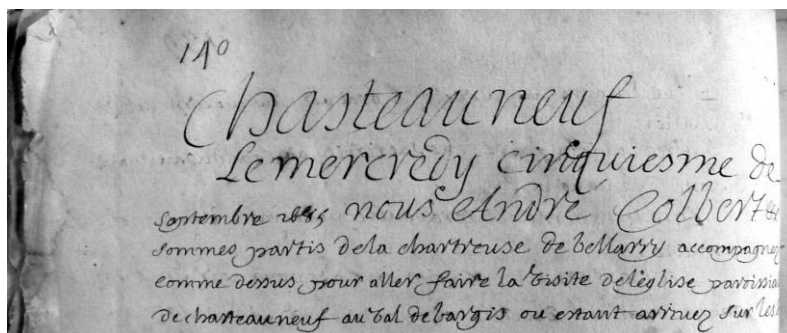 140
Chasteauneuf
Le mercredy cinquiesme de
septembre 1685 nous André Colbert &c
sommes partis de la chartreuse de bellarry accompagnez
comme dessus pour aller faire la visite de leglise paroissia
de chasteauneuf au val de bargis ou estant arrivez sur les